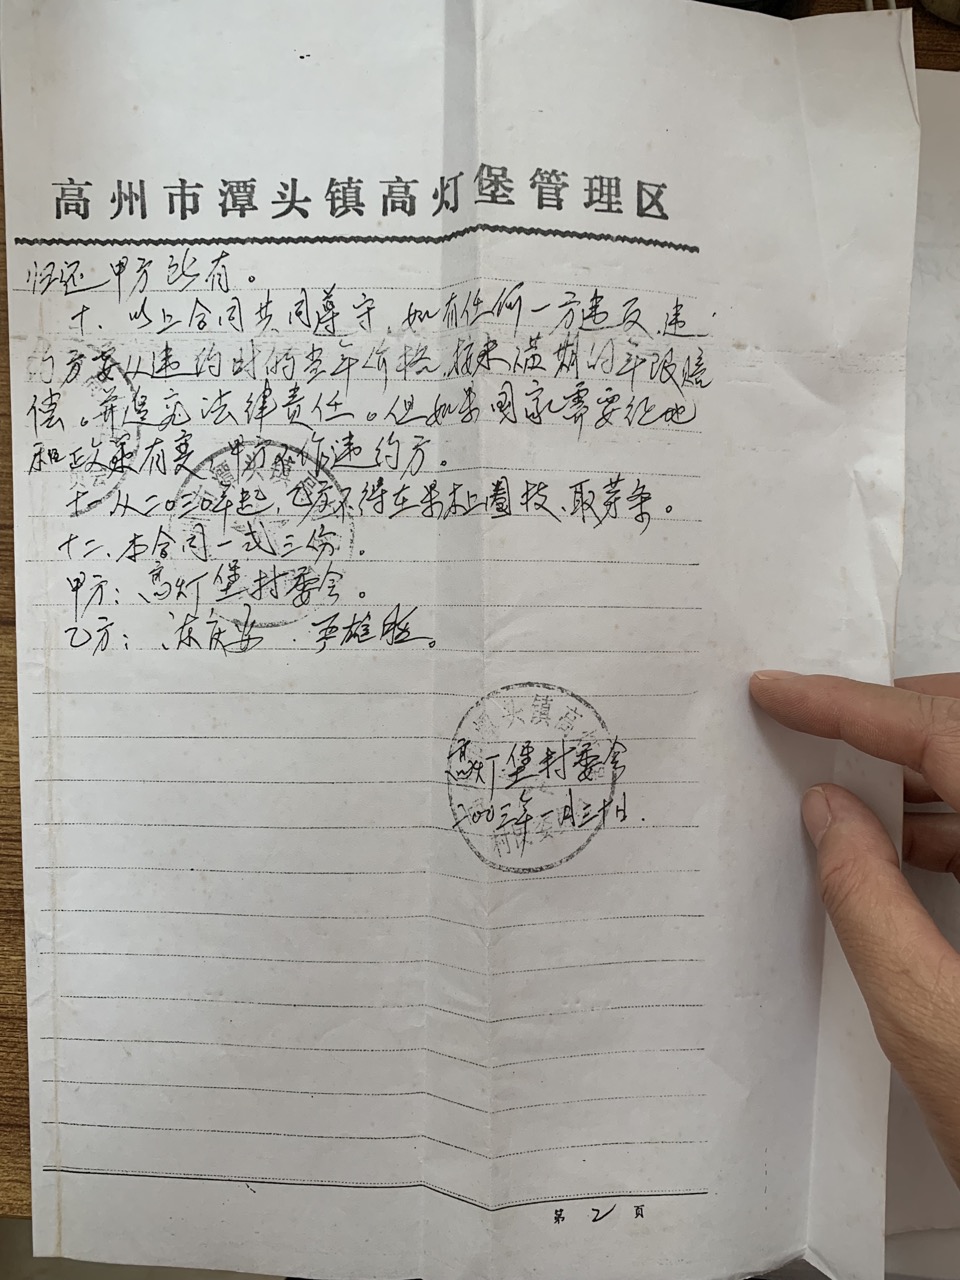 高州市潭头镇高灯堡管理区
归还甲方所有。
十、以上合同共同遵守，如有任何一方违反，违
约方要从违约时的当年价格，按未满期的年限赔
偿。并追究法律责任。但如果国家需要征地
和政策有变，甲方不作违约方。
十一从二0三0年起，乙方不得在果木上圈枝、取芽条。
十二、本合同一式三份。
甲方：高灯堡村委会。
乙方：
潭头镇
潭头镇高
高灯堡村委会
二00三年一月三十日.
村民委
第2页